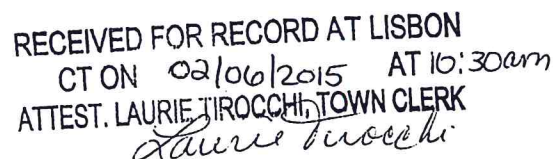 RECEIVED FOR RECORD AT LISBON
CT ON 02/06/2015 AT 10:30am
ATTEST. LAURIE TIROCCHI, TOWN CLERK
Laurie Tirocchi